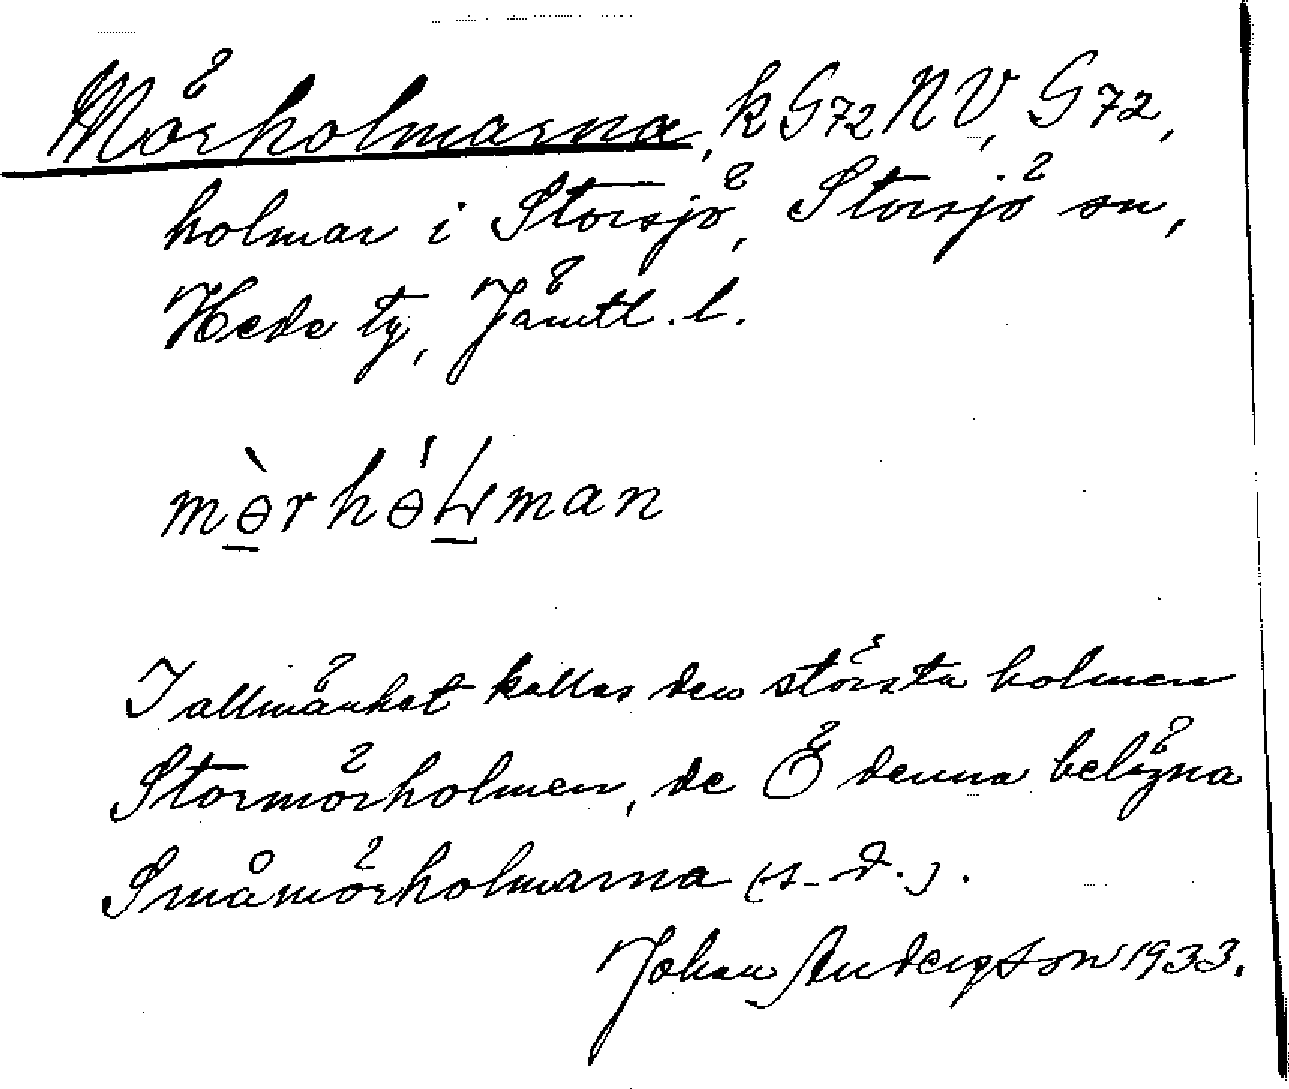 Mörholmarna, k G72 NV, G72,
holmar i Storsjö, Storsjö sn,
Hede tg, Jämtl. l.
mə̀rhəĺman
I allmänhet kallas den största holmen
Stormörholmen, de Ö denna belägna
Småmörholmarna (s. d.).
Johan Andersson 1933.